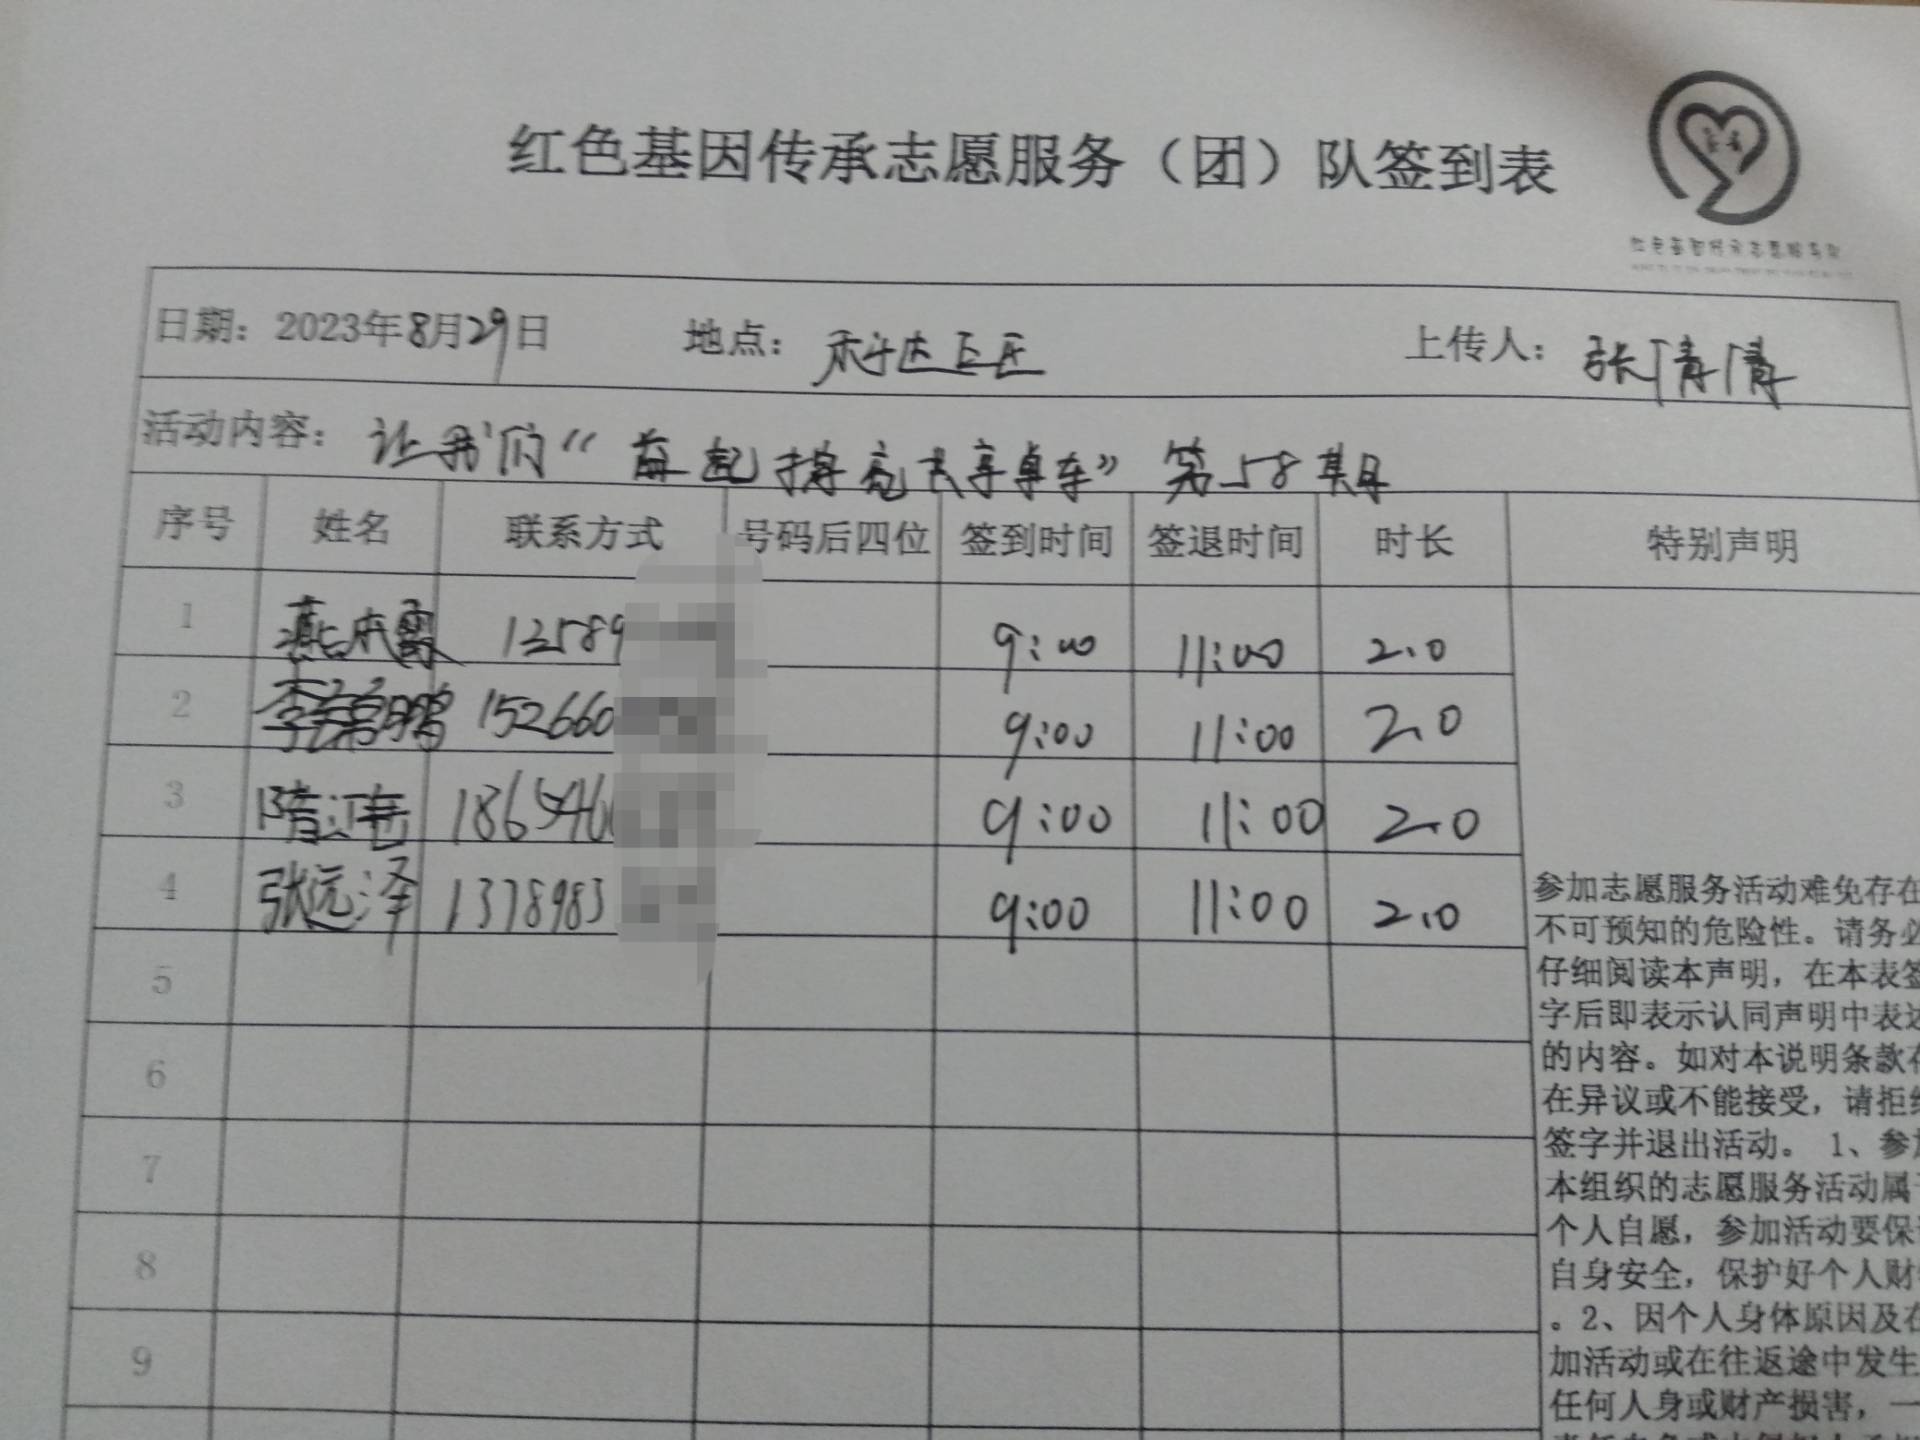 红色基因传承志愿服务（团）队签到表
日期：2023年8月29日 地点： 上传人：张倩倩
活动内容：让我们“ 起 亮共享单车”第58期
序号 姓名 联系方式 号码后四位 签到时间 签退时间 时长 特别声明
1 9:00 11:00 2.0
2 李 鹏 152660 9:00 11:00 2.0
3 隋 186546 9:00 11:00 2.0
4 张远泽 1378983 9:00 11:00 2.0
5
6
7
8
9
参加志愿服务活动难免存在
不可预知的危险性。请务必
仔细阅读本声明，在本表签
字后即表示认同声明中表达
的内容。如对本说明条款存
在异议或不能接受，请拒绝
签字并退出活动。 1、参加
本组织的志愿服务活动属于
个人自愿，参加活动要保证
自身安全，保护好个人财
。2、因个人身体原因及在
加活动或在往返途中发生
任何人身或财产损害，一